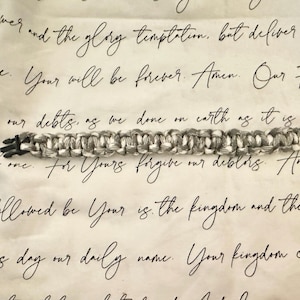 and the glory temptation, but deliver
Your will be forever. Amen. Our
our debts, as we done on earth as it is
one For Yours forgive our debtors.
llowed be Your is, the kingdom and the
s day our daily name. Your kingdom